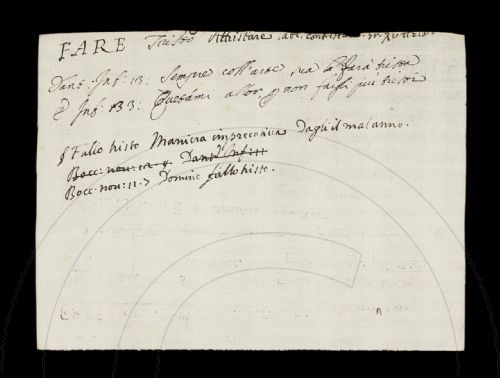 FARE Tristo Attristare lat. contristare
Dant. Inf. 13: Sempre coll'arte sua la farà trista
E Inf. 133: Quetàmi allor, p non fargli più tristi
§ Fallo tristo Maniera imprecativa Dagli il malanno.
Bocc. nov: Dant. Inf: 11
Bocc. nov: 11.7 Domine fallo tristo.